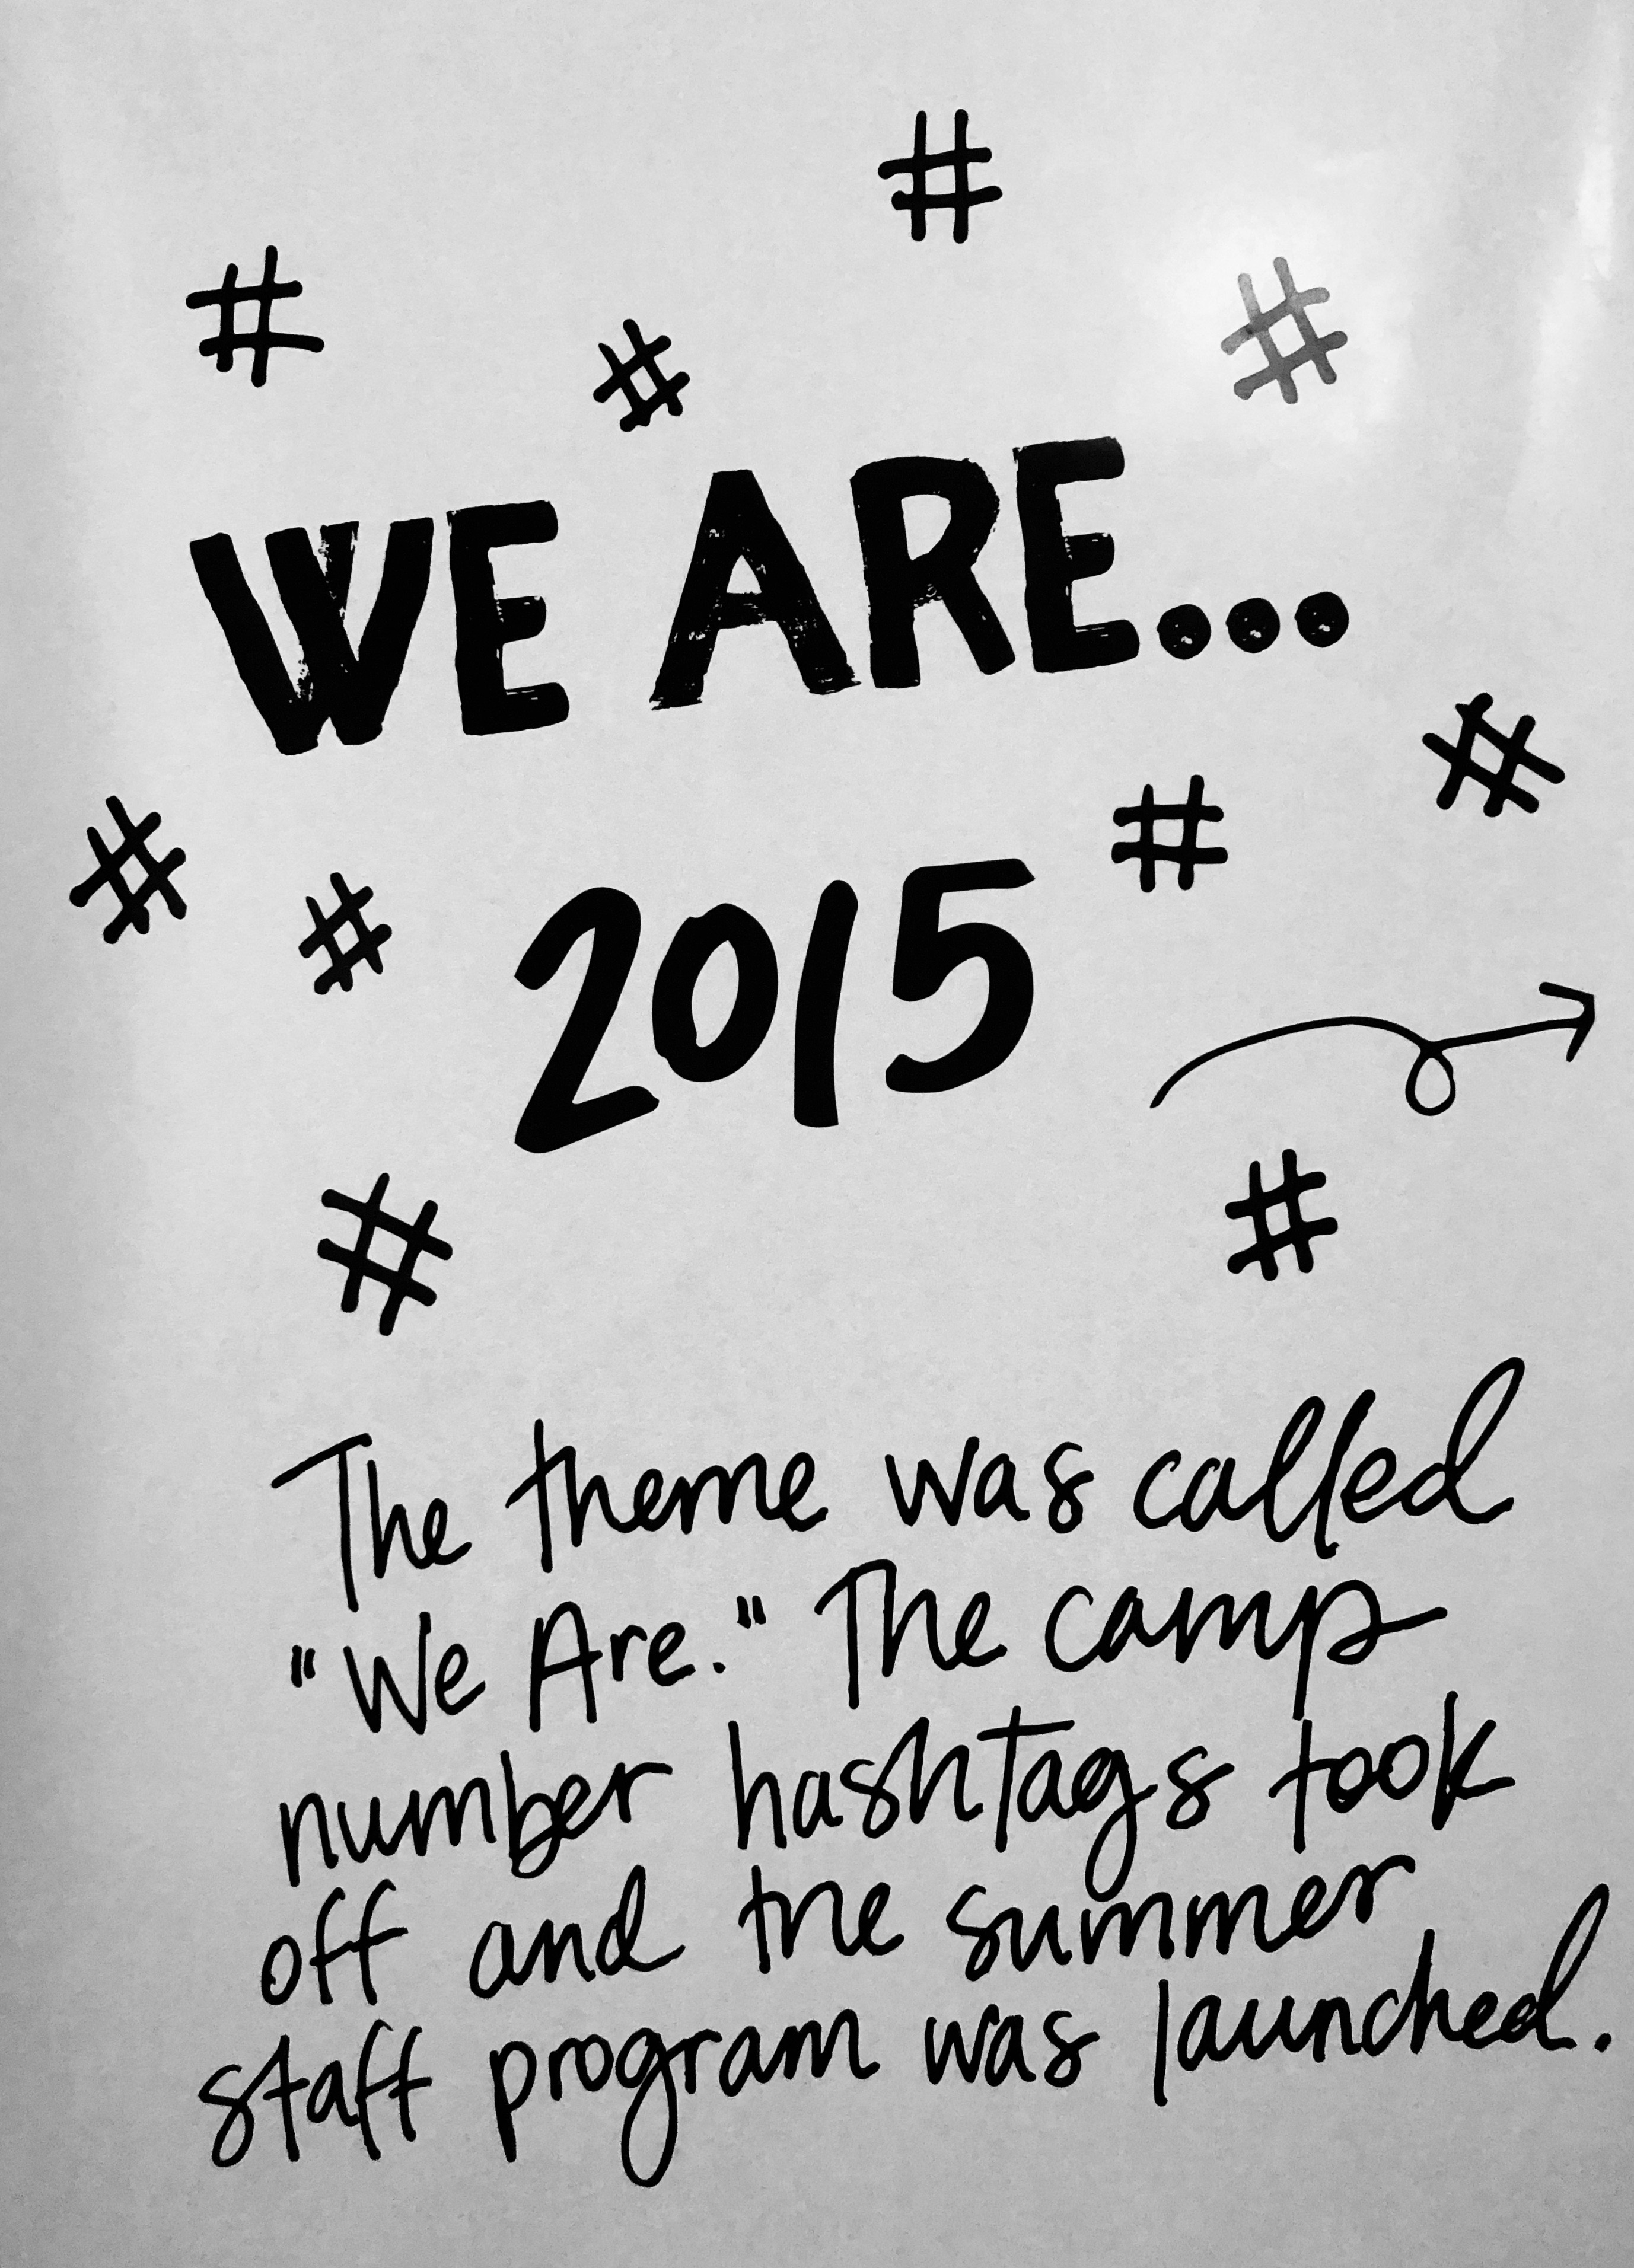 # 
# 
# 
#
WE ARE...
#
#
#
# 2015
#
#
The theme was called
"We Are." The camp
number hashtags took
off and the summer
staff program was launched.